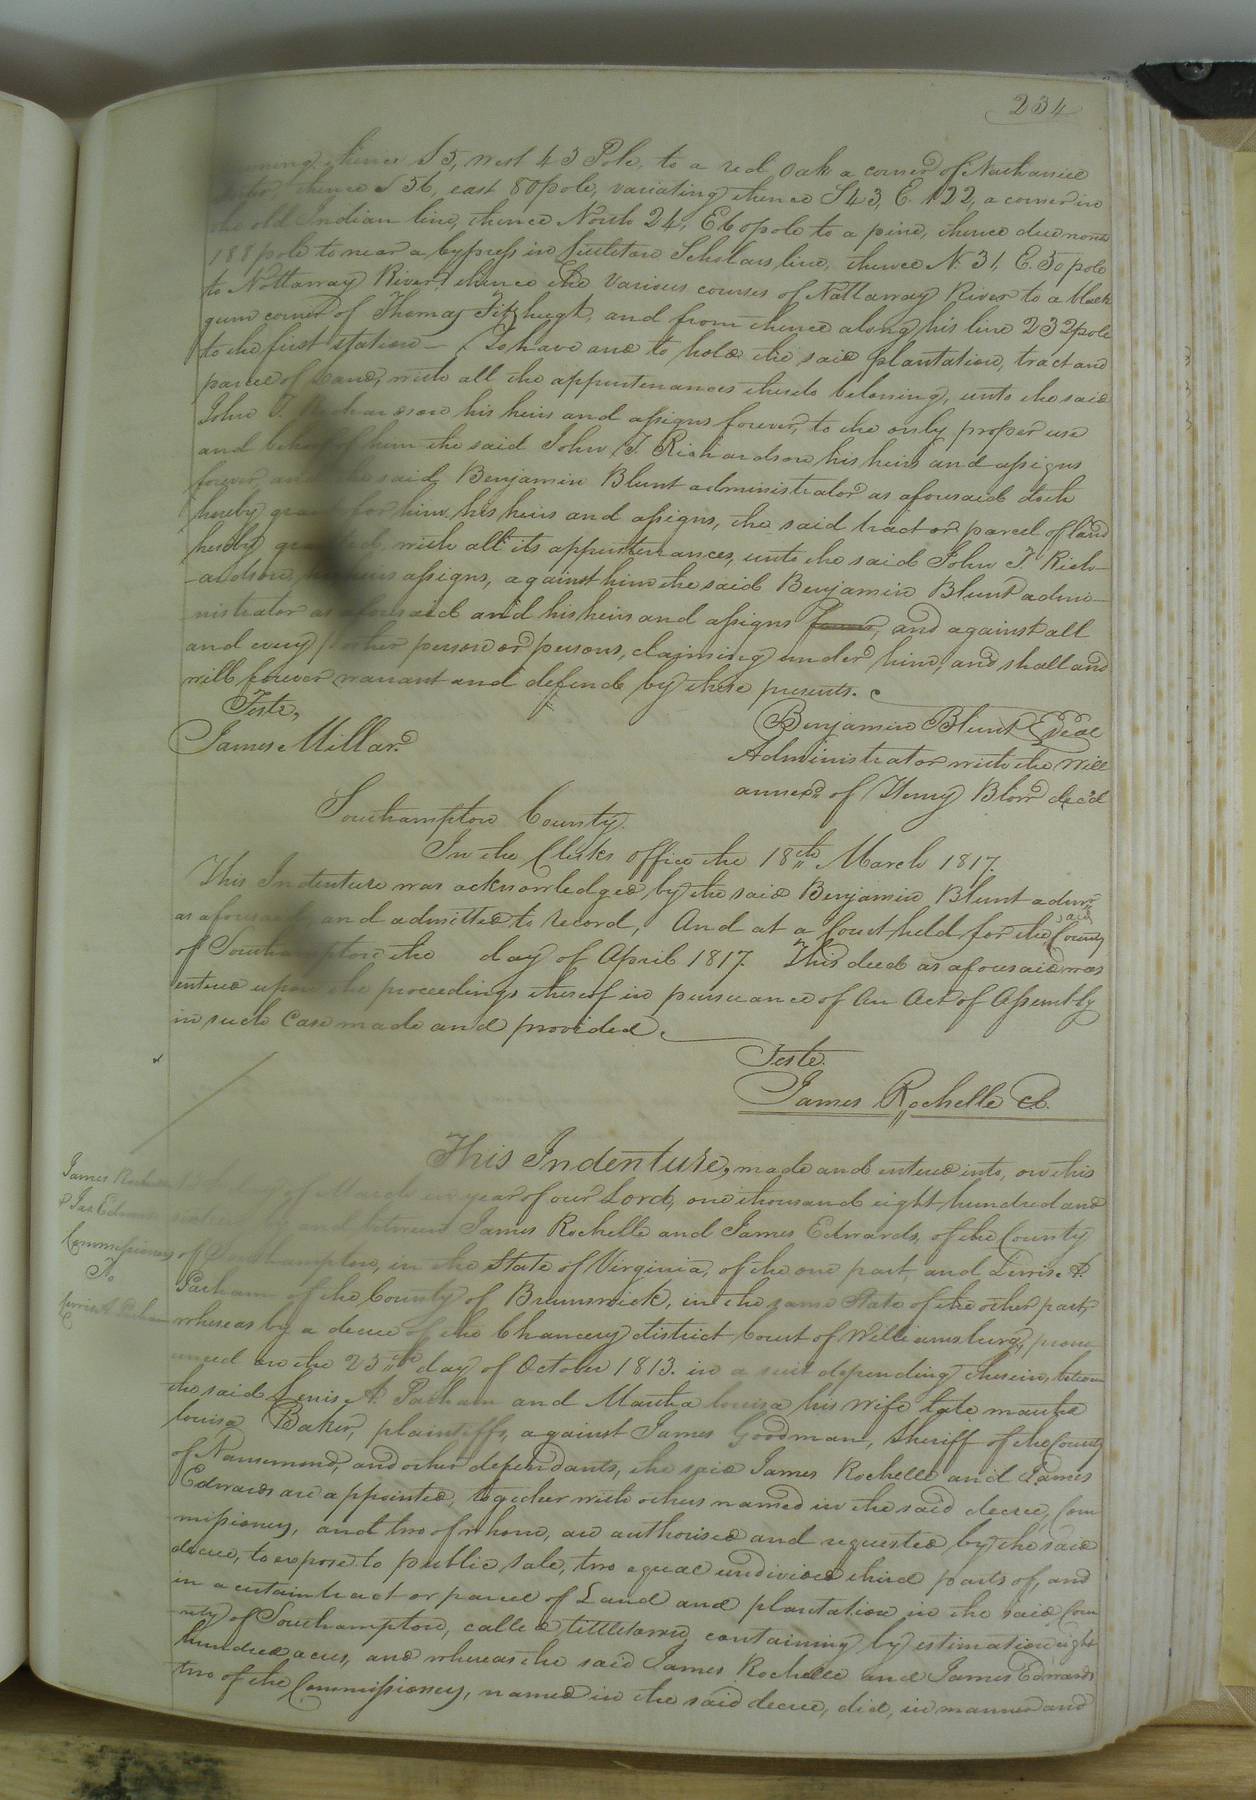 234
thence S5, West 43 Pole, to a red Oak a corner of Nathaniel
thence S 56, east 80 pole, variating thence S43, E. 122, a corner in
the old Indian line, thence North 24, E 60 pole to a pine, thence due north
188 pole to near a Cypress in Littleton Scholars line, thence N. 31, E. 50 pole
to Nottaway River, thence the various courses of Nottaway River to a black
gum corner of Thomas Fitzhugh, and from thence along his line 232 pole
to the first station — To have and to hold the said plantation, tract and
parcel of Land, with all the appurtenances thereto beloning, unto the said
John T. Richardson his heirs and assigns forever, to the only proper use
and behoof of him the said John T. Richardson his heirs and assigns
forever, and the said Benjamin Blunt administrator as aforesaid doth
hereby grant for him, his heirs and assigns, the said tract or parcel of land
hereby granted, with all its appurtenances, unto the said John T. Rich-
-ardson, his heirs assigns, against him the said Benjamin Blunt admi-
nistrator as aforesaid and his heirs and assigns and against all
and every other person or persons, claiming under him, and shall and
will forever warrant and defend by these presents.
Teste,
James Millar
Benjamin Blunt Seal
Administrator with the Will
annexd of Henry Blow dec'd
Southampton County.
In the Clerks office the 18th March 1817.
This Indenture was acknowledged by the said Benjamin Blunt admr
as aforesaid, and admitted to record, And at a Court held for the said County
of Southampton the day of April 1817. This deed as aforesaid was
entered upon the proceedings thereof in pursuance of An Act of Assembly
in such Case made and provided.
Teste.
James Rochelle Cl.
James Rochelle
& Jas. Edwards
Commissioners
To
Lewis A. Parham
This Indenture, made and entered into, on this
day of March in year of our Lord, one thousand eight hundred and
and between James Rochelle and James Edwards, of the County
of Southampton, in the State of Virginia, of the one part, and Lewis A.
Parham of the County of Brunswick, in the same State of the other part,
whereas by a decree of the Chancery district Court of Williamsburg, prono
unced on the 25th day of October 1813. in a suit depending therein, between
the said Lewis A. Parham and Martha Louisa his Wife late martha
louisa Baker, plaintiffs, against James Goodman, Sheriff of the County
of Nansemond, and other defendants, the said James Rochelle and James
Edwards are appointed, together with others named in the said decree, Com
missioners, and two of whom, are authorised and requested by the said
decree, to expose to public sale, two equal undivided third parts of, and
in a certain tract or parcel of Land and plantation in the said Cou
nty of Southampton, called tittletown, containing by estimation eight
hundred acres, and whereas the said James Rochelle and James Edwards
two of the Commissioners, named in the said decree, did, in manner and